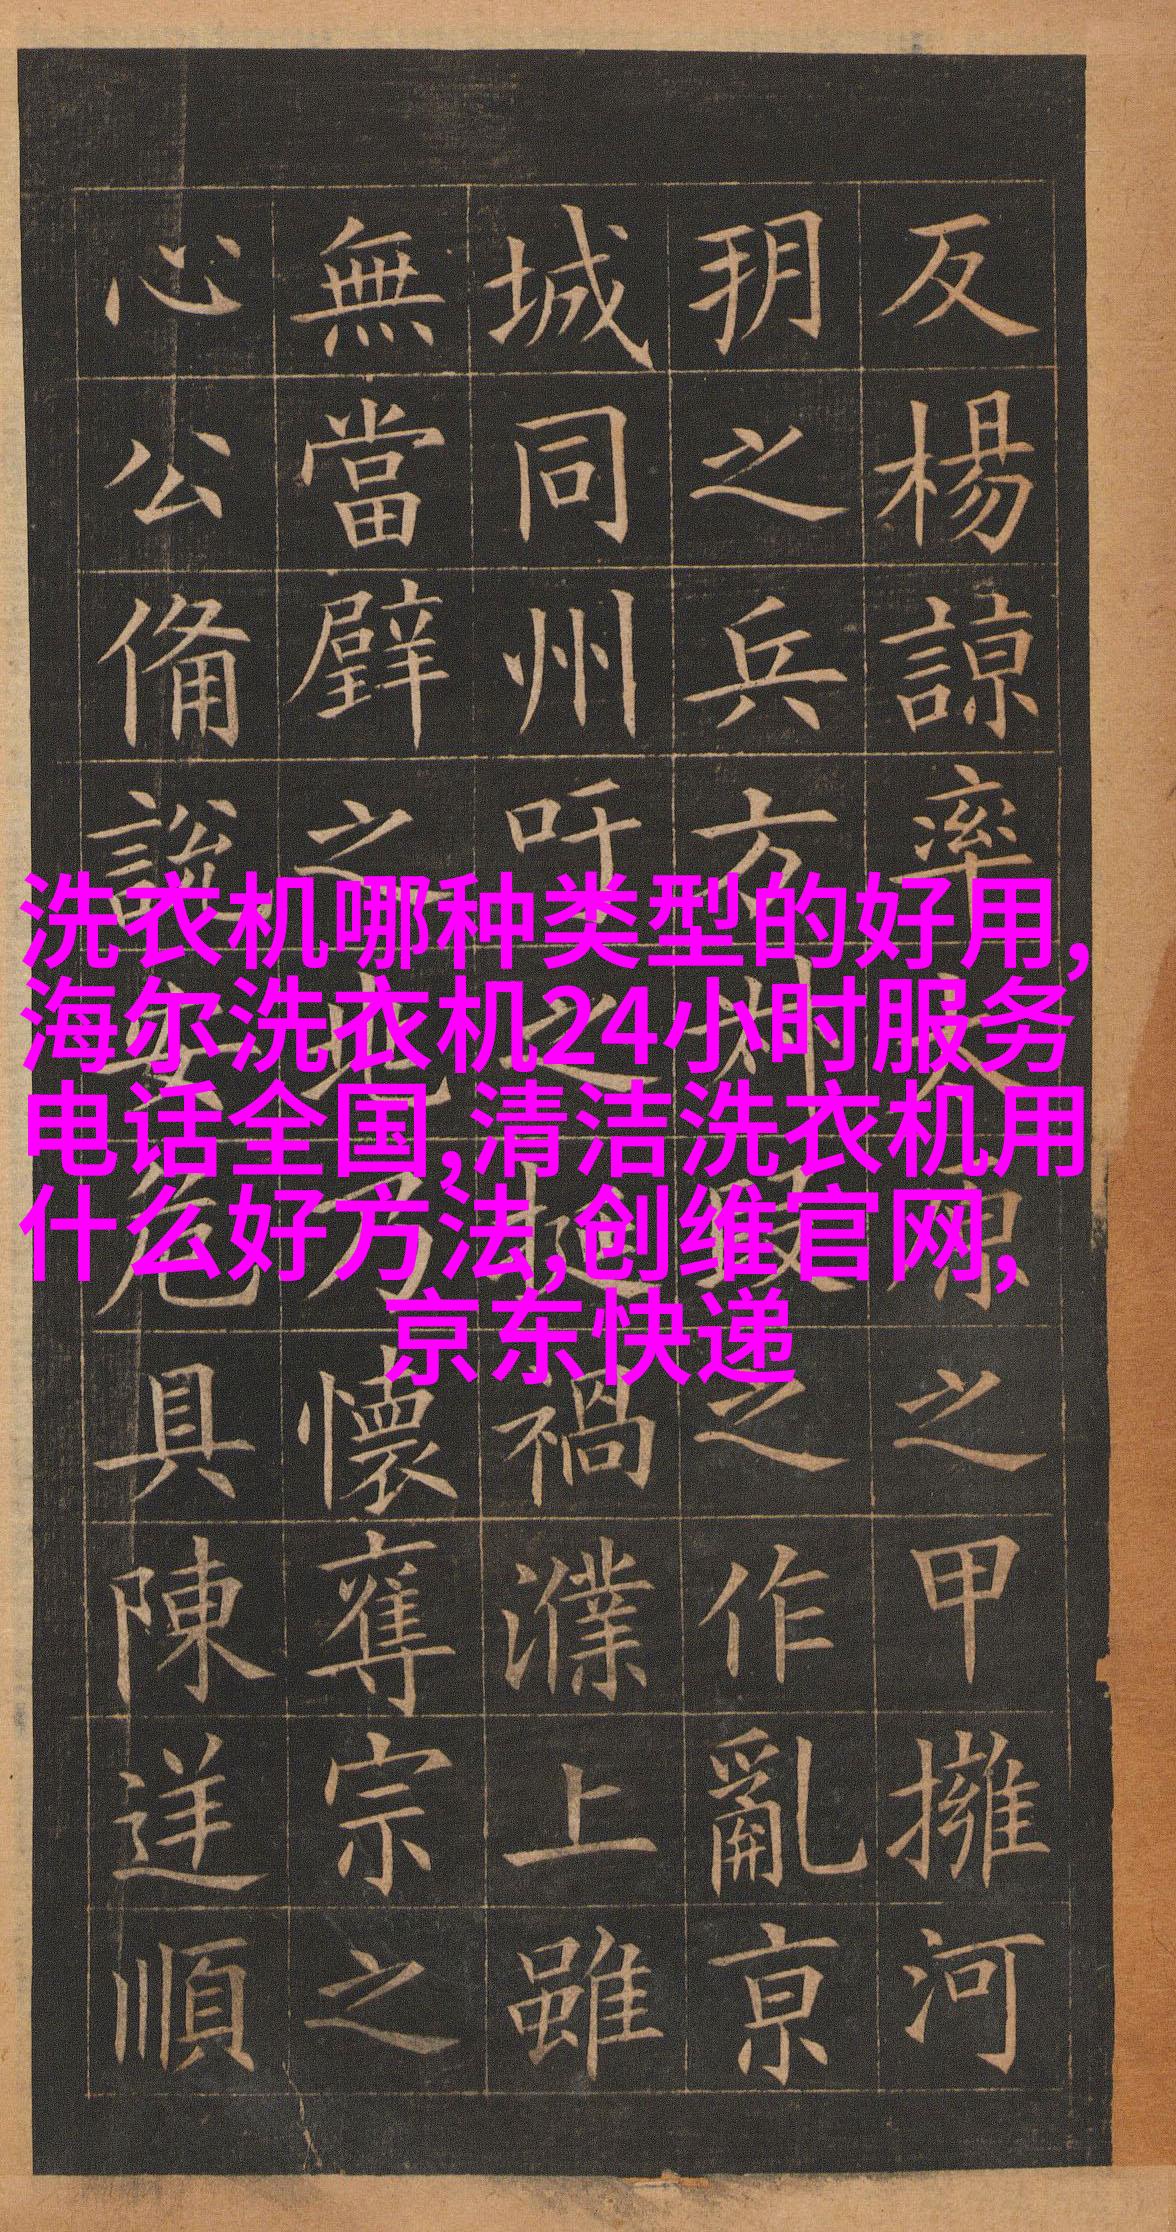 反楊諒率之甲擁河
玥之兵方之作亂京
城同州吁之禍濮上雖
無當璧之地乃懷奪宗之
心公備説安危具陳逆順
洗衣机哪种类型的好用,
海尔洗衣机24小时服务
电话全国,清洁洗衣机用
什么好方法,创维官网,
京东快递